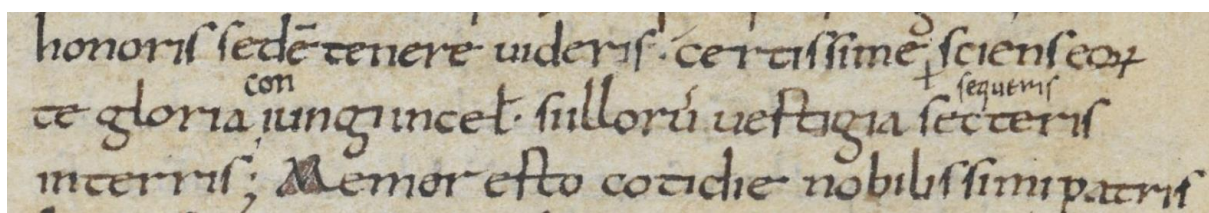 honoris sedē tenere uideris· certissime sciens eoꝝ
con ł sequeris
te gloria iungi in cel̄· si illorū uestigia secteris
in terris; Memor esto cotidie nobilissimi patris